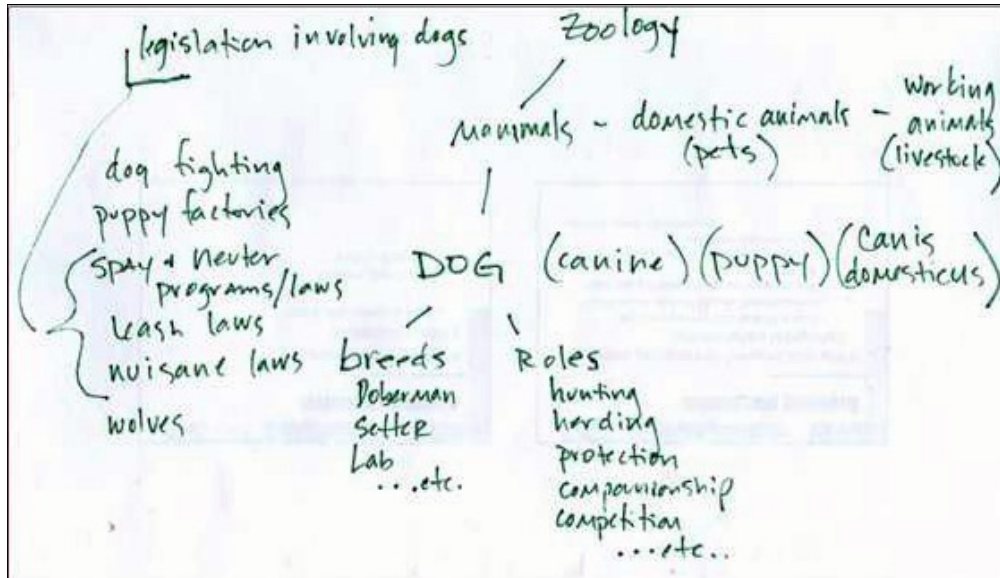 legislation involving dogs
Zoology
mammals - domestic animals - working
(pets) animals
(livestock)
dog fighting
puppy factories
spay + neuter
programs/laws
leash laws
nuisane laws
wolves
DOG (canine) (puppy) (Canis
domesticus)
breeds
Doberman
Setter
Lab
...etc.
Roles
hunting
herding
protection
companionship
competition
...etc..